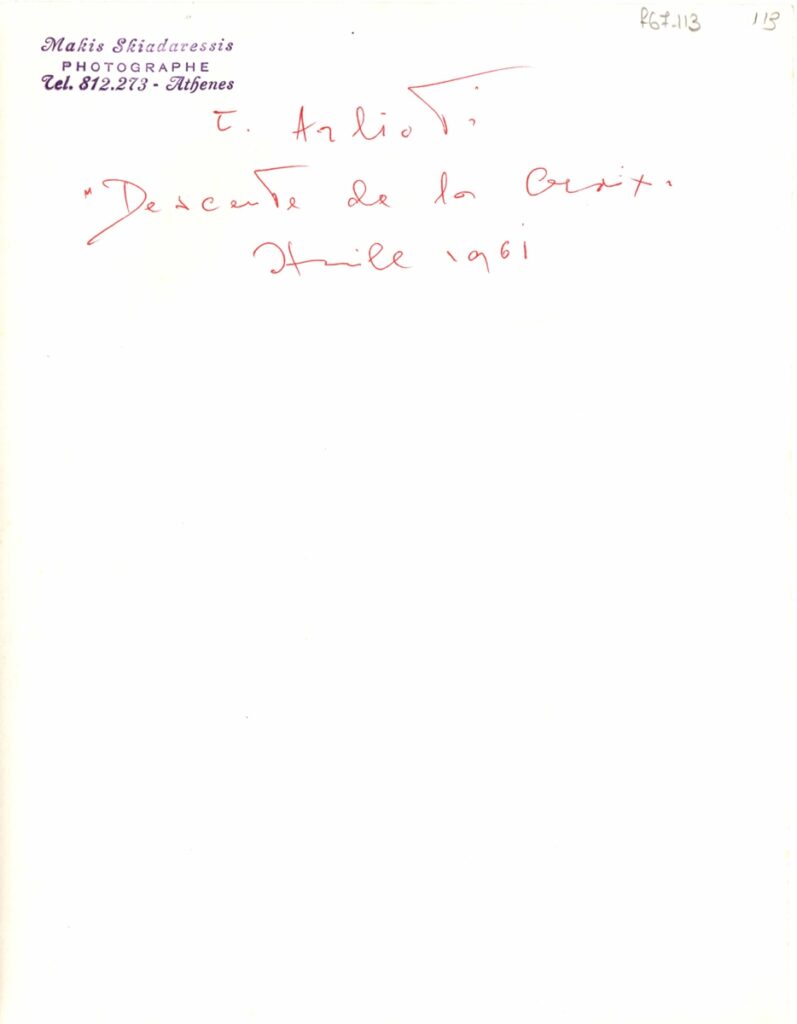 f67-113 113
Makis Skiadaressis
PHOTOGRAPHE
Tel. 812.273 - Athenes
E. Arlioti
"Descente de la Croix.
Huile 1961